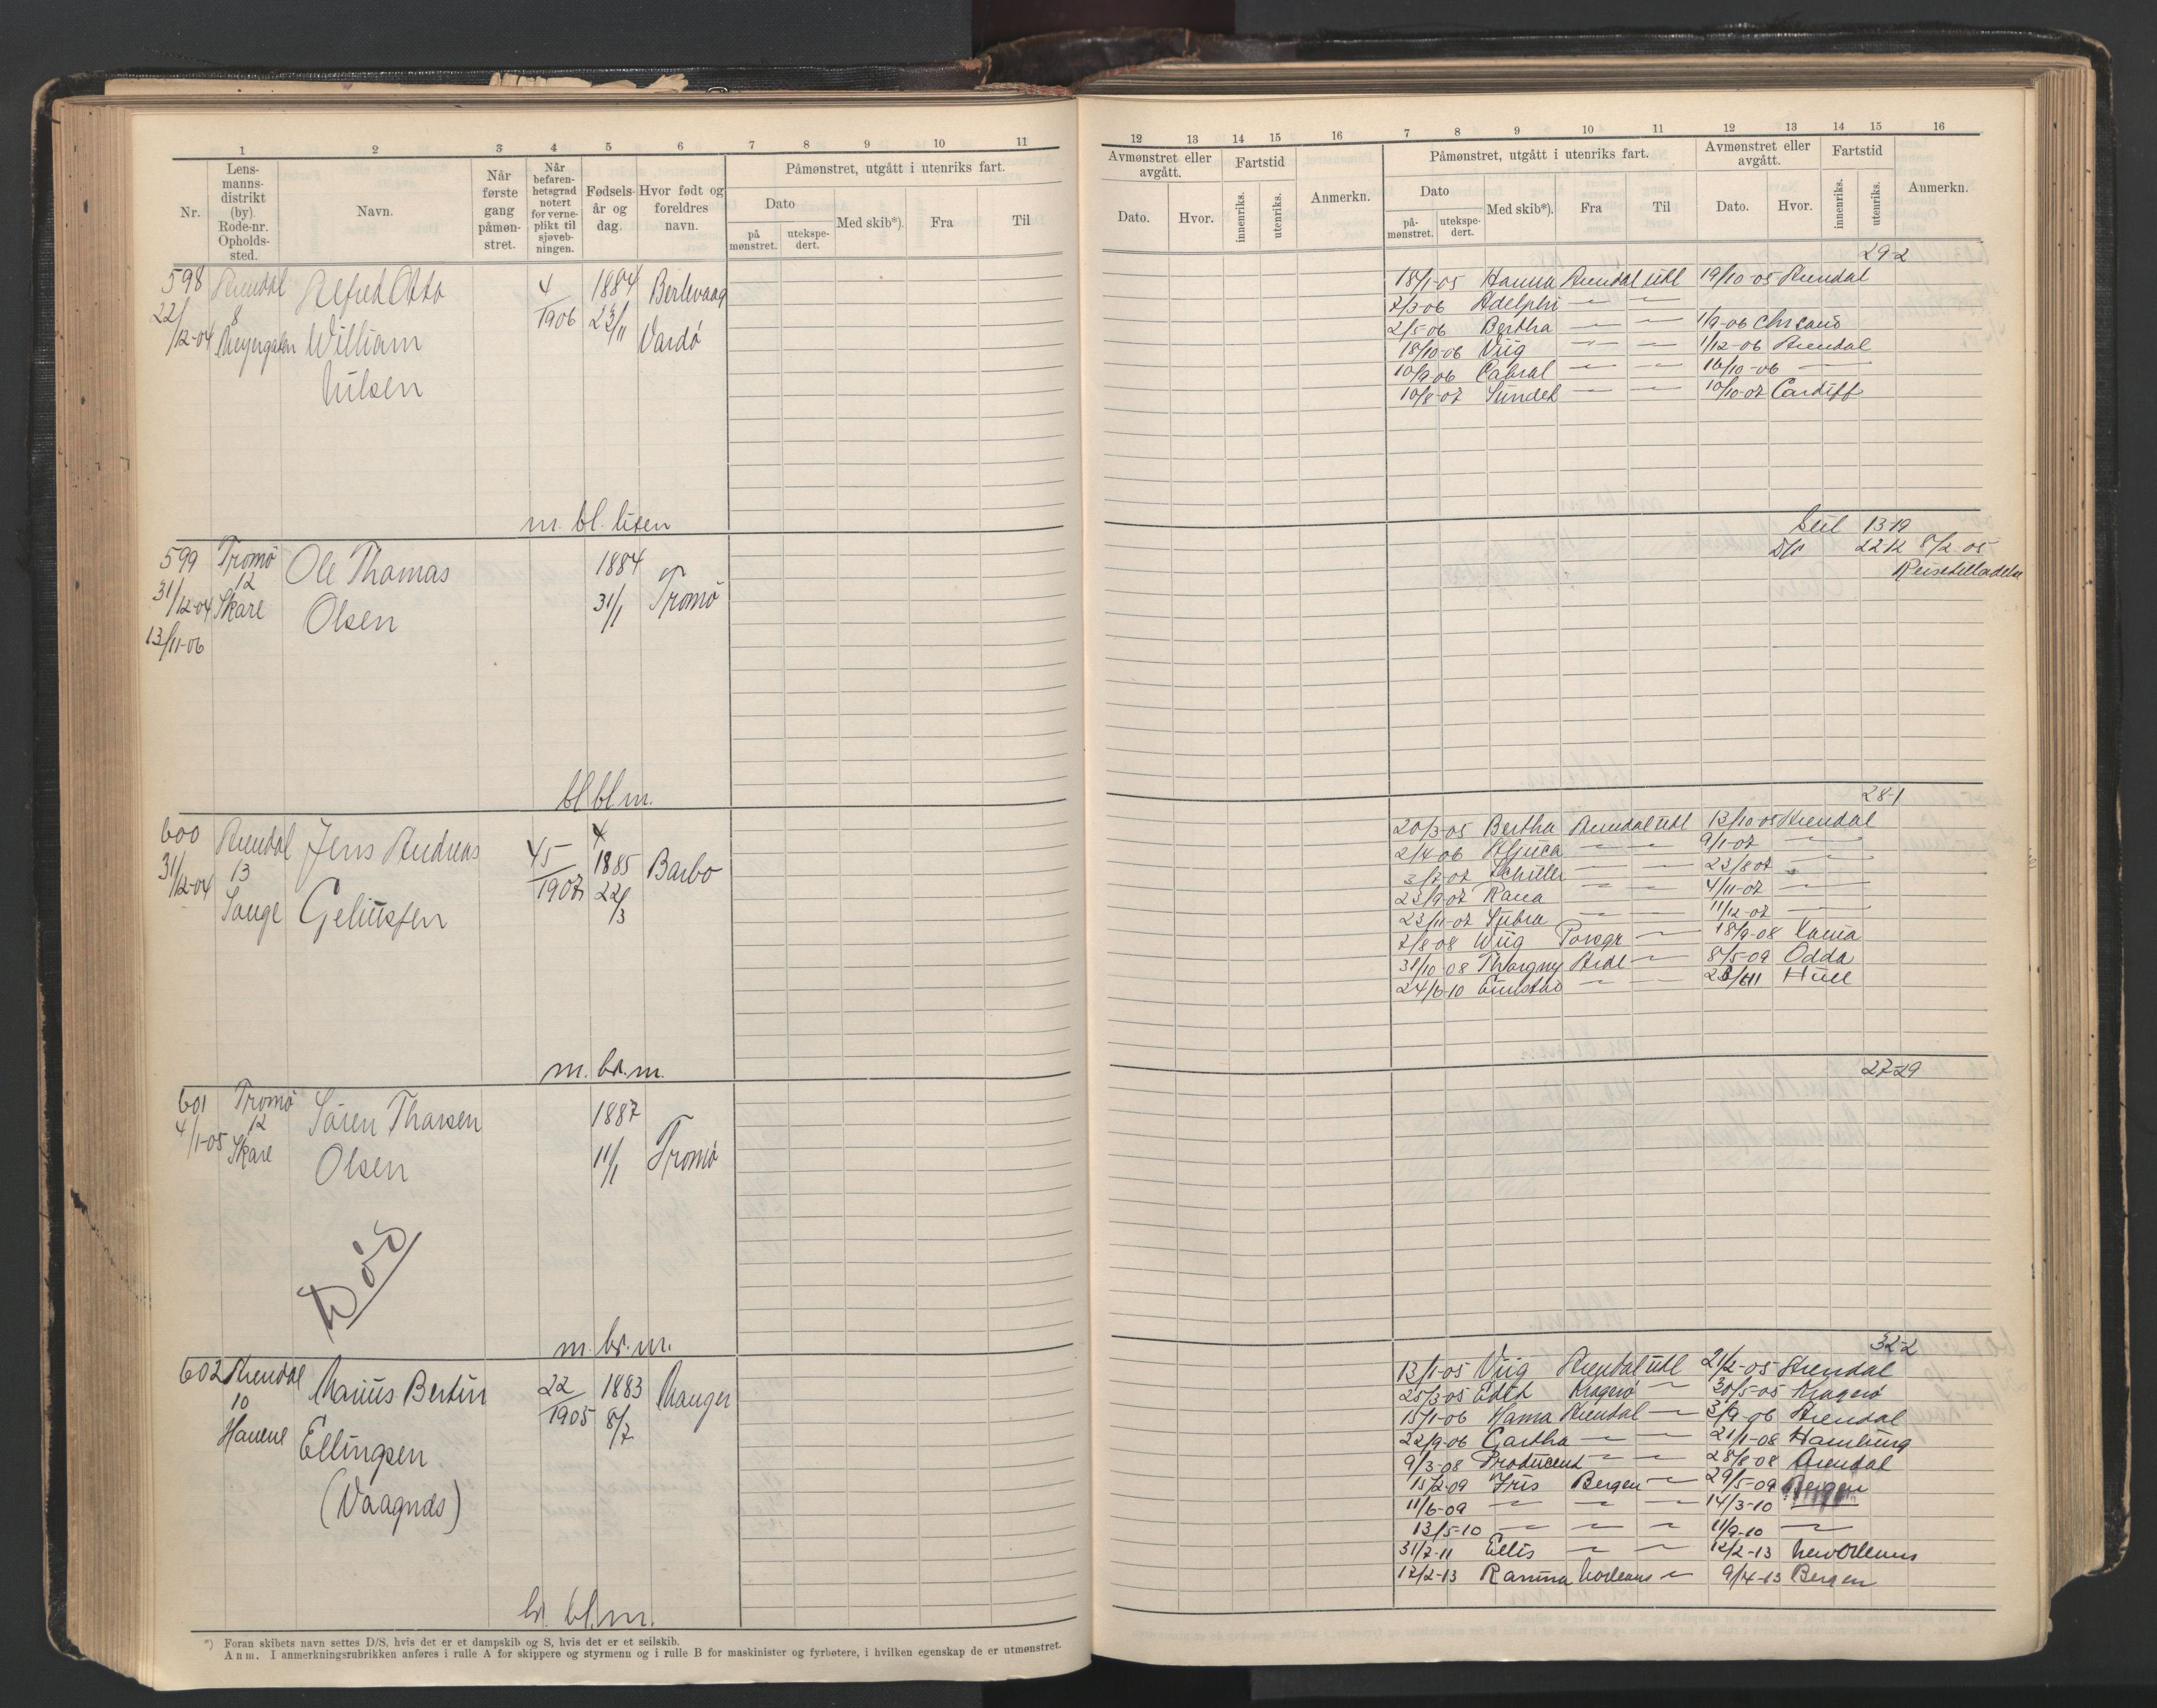 1 2 3 4 5 6 7 8 9 10 11
Nr.
Lens-
manns-
distrikt
(by).
Rode-nr.
Opholds-
sted.
Navn.
Når
første
gang
påmøn-
stret.
Når
befaren-
hetsgrad
notert
for verne-
plikt til
sjøveb-
ningen.
Fødsels-
år og
dag.
Hvor født og
foreldres
navn.
Påmønstret, utgått i utenriks fart.
Dato
på
mønstret.
utekspe-
dert.
Med skib*).
Fra
Til
12 13 14 15 16 7 8 9 10 11 12 13 14 15 16
Avmønstret eller
avgått.
Dato.
Hvor.
Fartstid
innenriks.
utenriks.
Anmerkn.
Påmønstret, utgått i utenriks fart.
Dato
på-
mønstret.
utekspe-
dert.
Med skib*).
Fra
Til
Avmønstret eller
avgått.
Dato.
Hvor.
Fartstid
innenriks.
utenriks.
Anmerkn.
598 Arendal Alfred Otto 4 1884 Berlevaag
22/12-04 8 William 1906 23/11 Vardø
Nilsen
29-2
18/1-05 Hanna Arendal Utl 19/10-05 Arendal
2/3-06 Adelphi — —
2/5-06 Bertha — — 1/9-06
18/10-06 Viig — — 1/12-06 Arendal
10/9-06 Cabral — — 16/10-06 —
10/8-07 Sundet — — 10/10-07 Cardiff
m. bl. liten
599 Tromø Ole Thomas 1884
31/12-04 12 Skare Olsen 31/1 Tromø
13/11-06
Seil 13-19
D/S 22-12 8/2-05
Reisetilladelse
bl. bl. m.
600 Arendal Jens Andreas 45 4 1885 Barbo
31/12-04 13 1907 22/3
Songe
28-1
20/3-05 Bertha Arendal Utl 12/10-05 Arendal
2/4-06 — — 9/1-07 —
3/7-07 Schiller — — 23/8-07 —
23/9-07 Rana — — 4/11-07 —
23/11-07 — — 11/12-07 —
7/8-08 Wiig Porsgr — 18/9-08
31/10-08 Thorgny Ardl — 8/5-09 Odda
24/6-10 — — Hull
m. br. m.
601 Tromø Søren Tharsen 1887
4/1-05 12 Skare Olsen 11/1 Tromø
27-29
Død
m. br. m.
602 Arendal Marius Bertin 22 1883 Manger
10 1905 8/7
Ellingsen
(Vaagnes)
32-2
13/1-05 Viig Arendal Utl 21/2-05 Arendal
25/3-05 Edth Kragerø — 30/5-05 Kragerø
15/1-06 Hanna Arendal — 3/9-06 Arendal
22/9-06 Gartha — — 21/1-08 Hamburg
9/3-08 Producent — — 28/8-08 Arendal
15/2-09 Iris Bergen — 29/5-09 Bergen
11/6-09 — — — 14/3-10 —
13/5-10 — — — 11/9-10 —
31/7-11 Ellis — — 12/2-13 New Orleans
17/2-13 Ranma Norleans — 9/4-13 Bergen
br. bl. m.
*) Foran skibets navn settes D/S, hvis det er et dampskib og S, hvis det er et seilskib.
Anm. I anmerkningsrubrikken anføres i rulle A for skippere og styrmenn og i rulle B for maskinister og fyrbøtere, i hvilken egenskap de er utmønstret.